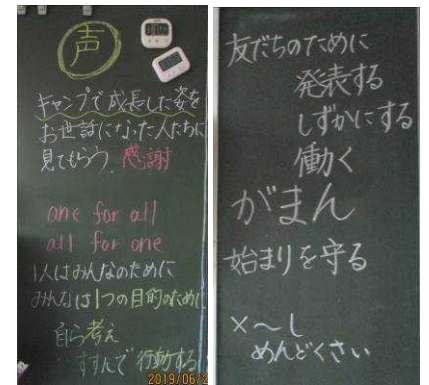 声
キャンプで成長した姿を
お世話になった人たちに
見てもらう。感謝
one for all
all for one
1人はみんなのために
みんなは1つの目的のために
自ら考え
すすんで行動する
2019/06/2
友だちのために
発表する
しずかにする
働く
がまん
始まりを守る
×〜し
めんどくさい